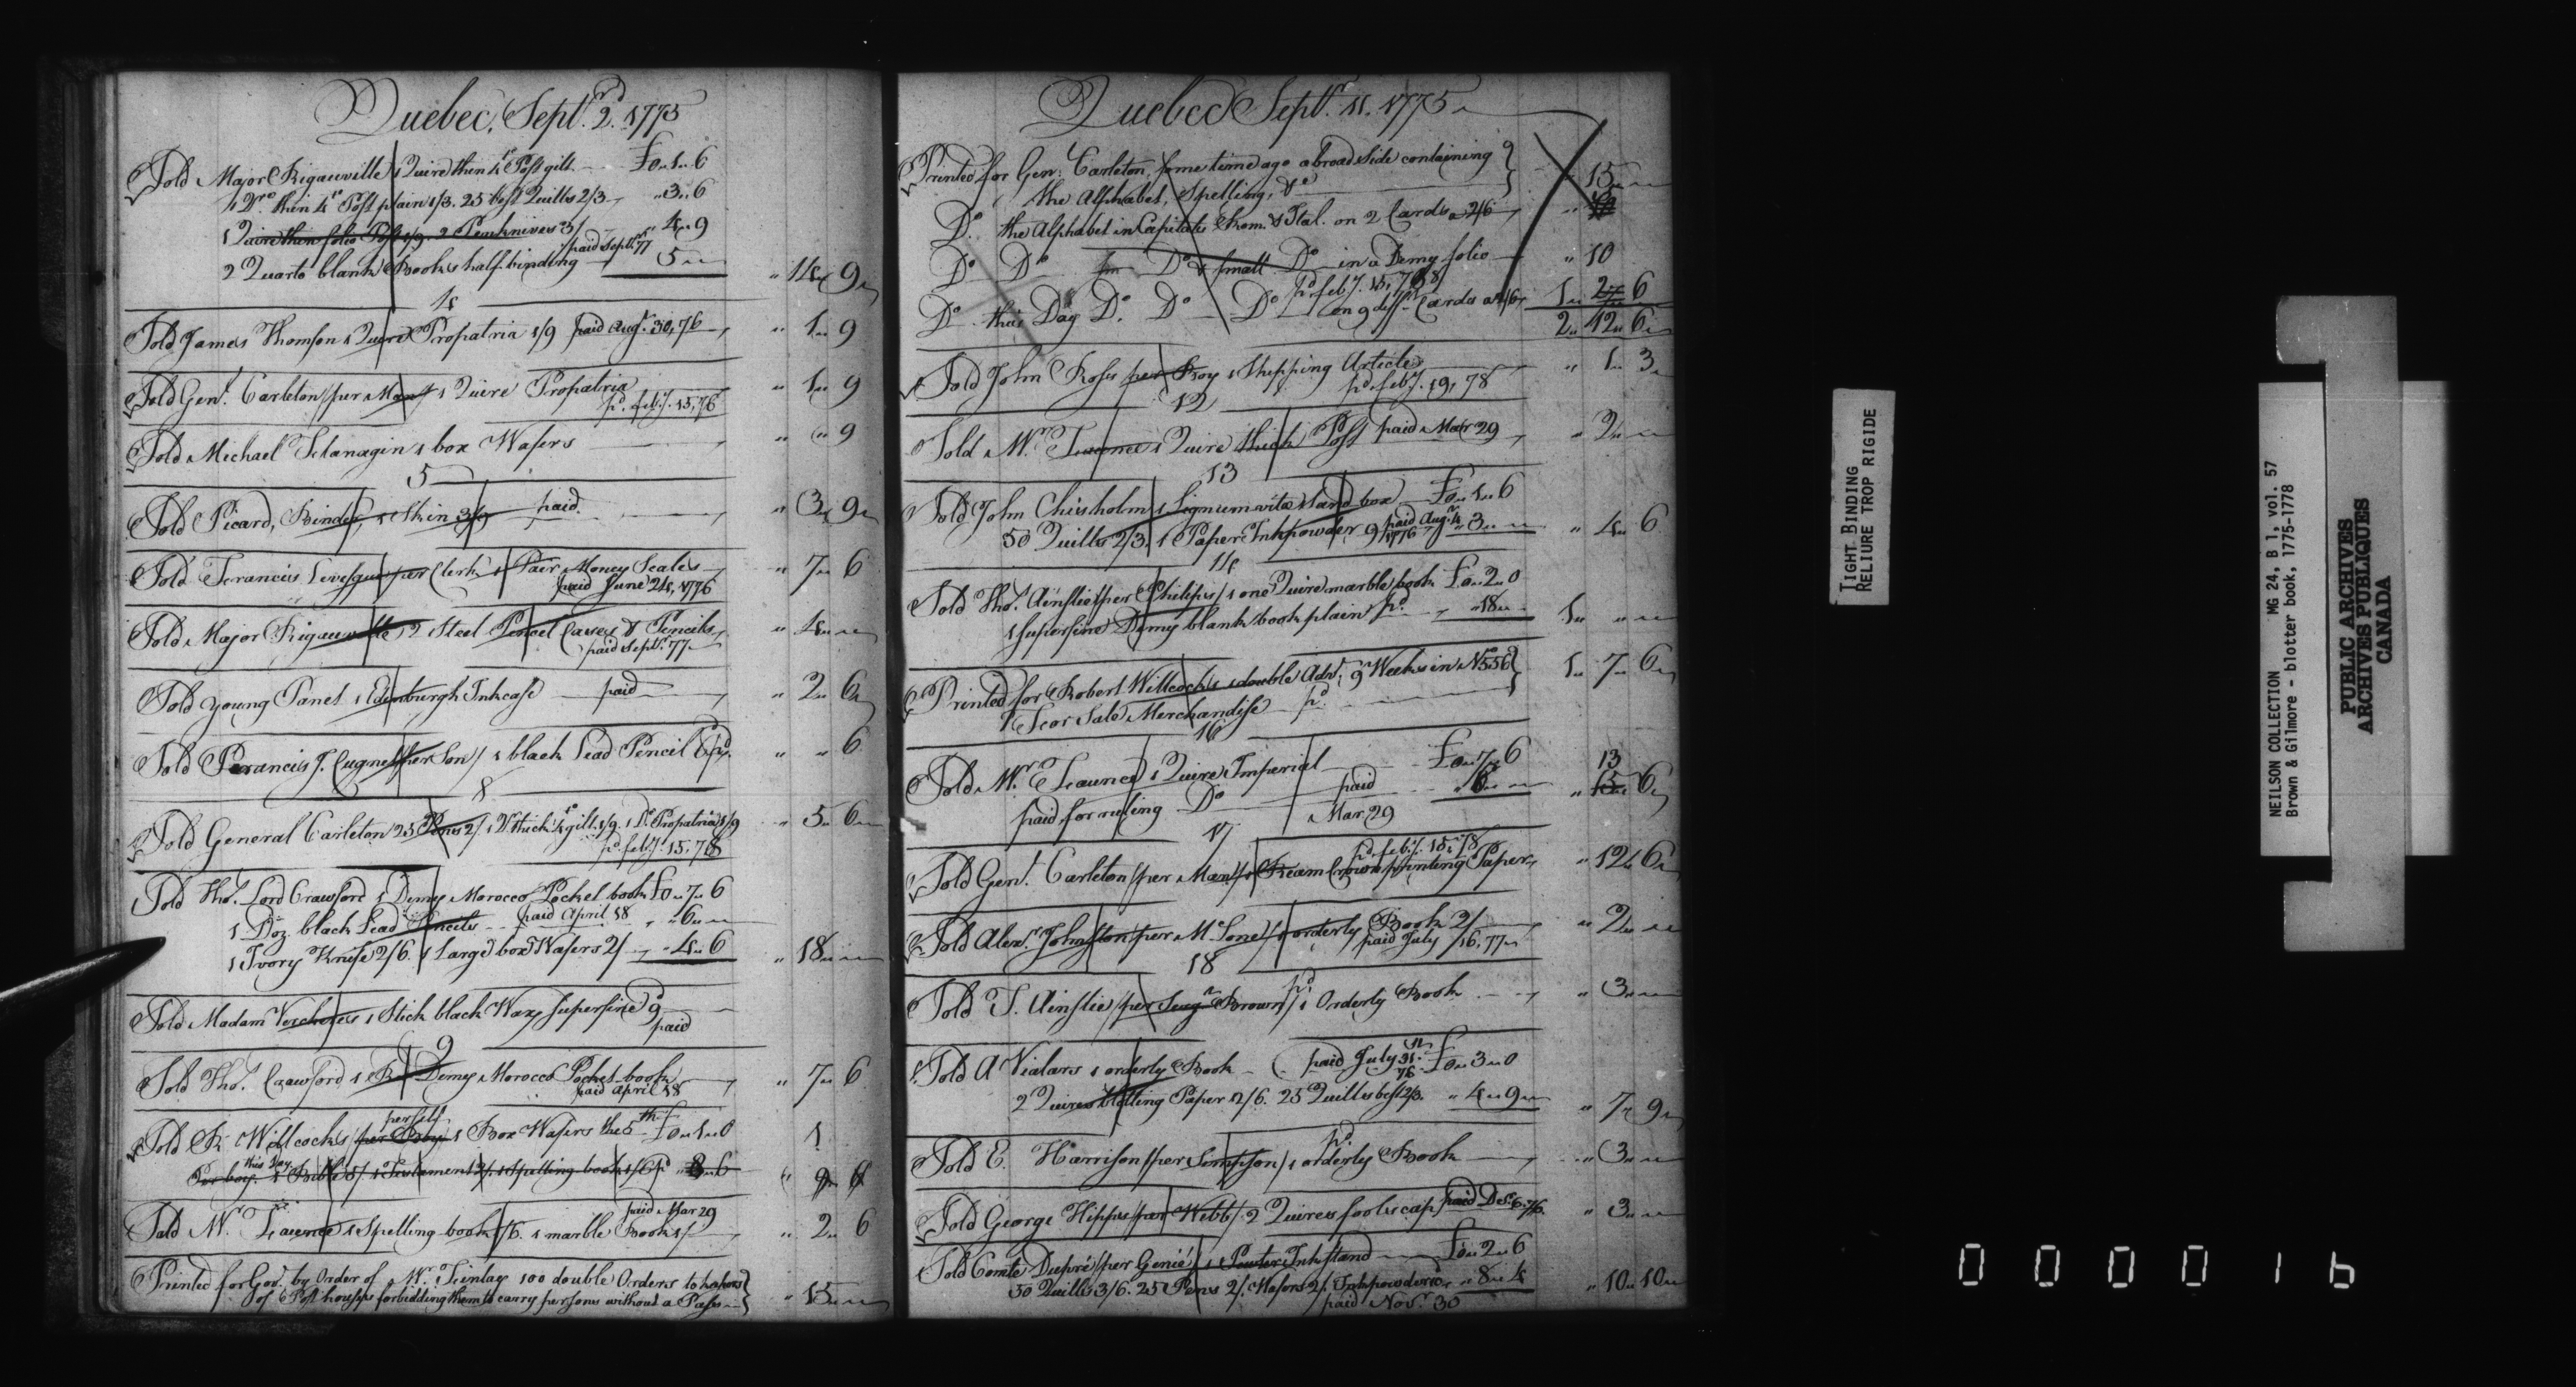 Quebec, Sept.r 2.d 1775
Sold Major Rigauville 1 Quire thin 4to Post gilt £0 „ 1 „ 6
1 Dro. thin 4to Post plain 1/3. 25 best Quills 2/3 „ 3 „ 6
1 Quire thin folio Post 1/9. 2 Penknives 3/ „ 4 „ 9
2 Quarto blank Books half-binding paid Sept.r 77 5 „ „ 14 „ 9
4
Sold James Thomson 1 Quire Propatria 1/9 paid Aug.t 30, 76 „ 1 „ 9
Sold Gen.l Carleton /per Man/ 1 Quire Propatria „ 1 „ 9
pd. feby. 15, 76
Sold Michael Flanagin 1 box Wafers „ „ 9
5
Sold Picard, Binder, 1 Skin 3/9 paid. „ 3 „ 9
Sold Francis Levesque /per Clerk/ 1 Pair Money Scales „ 7 „ 6
paid June 24, 1776
Sold Major Rigauville, 2 Steel Pencil Cases & Pencils „ 4 „
paid Sept.r 77
Sold young Panet 1 Edenburgh Inkcase paid „ 2 „ 6
Sold Francis J. Cugnet /per Son/ 1 black Lead Pencil 6 pd. „ „ 6
8
Sold General Carleton 25 Pens 2/. 1 Do. thick 4to gilt 1/9. 1 Do. Propatria 1/9 „ 5 „ 6
pd. feby. 15, 78
Sold Tho.s Lord Crawford 1 Demy Morocco Pocket book £0 „ 7 „ 6
1 Doz. black Lead Pencils paid April 18 „ 6 „
1 Ivory Knife 2/6. 1 Large box Wafers 2/ „ 4 „ 6 „ 18 „
Sold Madam Vercheres 1 Stick black Wax superfine 9d
paid
9
Sold Tho.s Crawford 1 Demy Morocco Pocket-book „ 7 „ 6
paid April 18
perself
Sold R. Willcocks /per Boy/ 1 Box Wafers the 5th £0 „ 1 „ 0 1
this Day
Per boy. 1 Bible 5/. 1 Testament 2/. 1 Spelling book 1/6 pd „ 8 „ 6 „ 9 „ 6
paid Mar 29
Sold W. Launce 1 Spelling book 1/6. 1 marble Book 1/ „ 2 „ 6
Printed for Gov.t by Order of Mr. Finlay 100 double Orders to keepers
of Post houses forbidding them to carry persons without a Pass „ 15 „
Quebec Sept.r 11. 1775
Printed for Gen: Carleton some time ago a broad side containing
the Alphabet, Spelling, &c 15 „
Do. the Alphabet in Capitals Rom. & Ital. on 2 Cards a 2/6 „
Do Do Do & small Do in a Demy folio „ 10
pd. feby. 15, 78
Do this Day Do. Do Do on 9 diff.t Cards a 2/6 1 „ 2 „ 6
2 „ 12 „ 6
Sold John Ross per Boy 1 Shipping Article „ 1 „ 3
pd. feby. 19, 78
12
Sold Mr. Launce 1 Quire thick Post paid Mar 29 „ 2 „
13
Sold John Chisholm 1 Lignumvitæ Sand box £0 „ 1 „ 6
50 Quills 2/3. 1 Paper Inkpowder 9 paid Aug.t 1776 „ 3 „ „ 4 „ 6
14
Sold Tho.s Ainslie /per Philips/ 1 one Quire marble book £0 „ 2 „ 0
1 superfine Demy blank book plain pd. „ 18 „ 1 „ „
Printed for Robert Willcocks 1 double Adv.t 9 Weeks in No 556 1 „ 7 „ 6
For Sale Merchandise pd.
16
Sold Mr. Launce 1 Quire Imperial £0 „ 7 „ 6 13
paid for ruling Do paid 6 „ „ 15 „ 6
Mar. 29
17
pd. feby. 15, 78
Sold Gen.l Carleton /per Man/ 1 Ream Crown printing Paper „ 12 „ 6
Sold Alex.r Johnston /per McLone/ 1 orderly Book 2/ „ 2 „
paid July 16, 77
18
Sold T. Ainslie /per Brown/ 1 Orderly Book pd. „ 3 „
Sold A Vialars 1 orderly Book paid July 31. 76 £0 „ 3 „ 0
2 Quires blotting Paper 2/6. 25 Quills best 2/3. „ 4 „ 9 „ 7 „ 9
Sold E. Harrison /per Simpson/ 1 orderly Book pd. „ 3 „
Sold George Hipps /per Webb/ 2 Quires foolscap paid Dec. 6. 76. „ 3 „
Sold Comte Dupré /per Genié/ 1 Pewter Inkstand £0 „ 2 „ 6
50 Quills 3/6. 25 Pens 2/. Wafers 2/. Inkpowder 10 „ 8 „ 4 „ 10 „ 10
paid Nov.r 30
TIGHT BINDING
RELIURE TROP RIGIDE
NEILSON COLLECTION MG 24, B 1, vol. 57
Brown & Gilmore - blotter book, 1775-1778
PUBLIC ARCHIVES
ARCHIVES PUBLIQUES
CANADA
000016